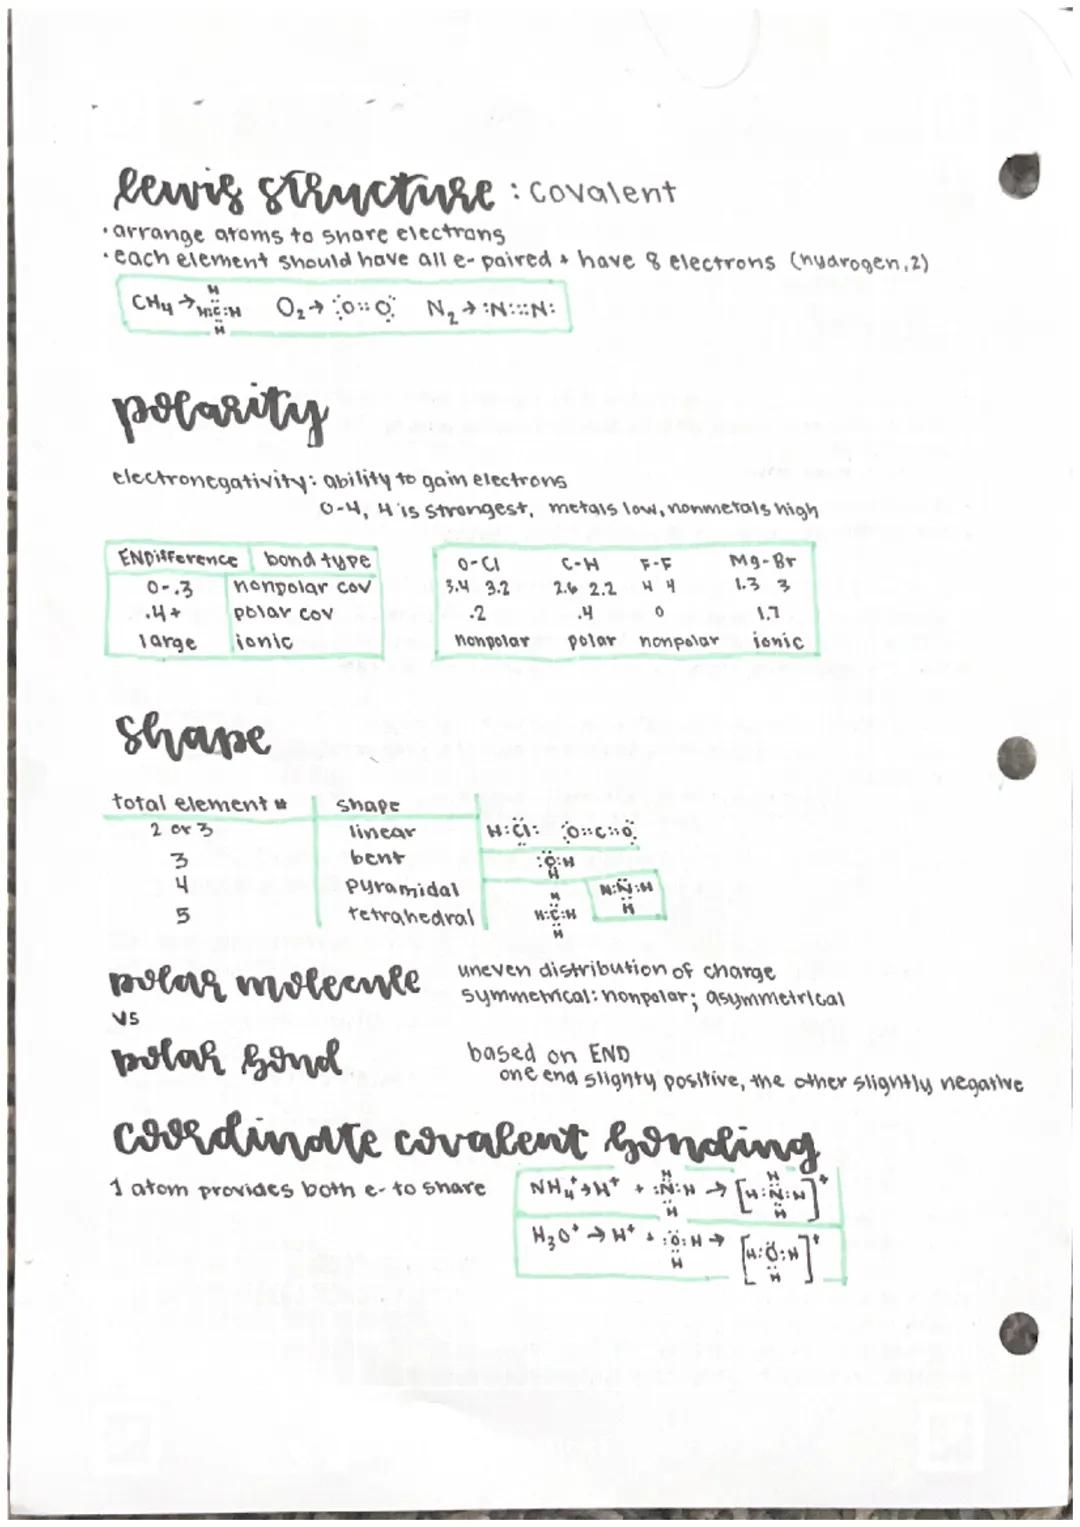 lewis structure : covalent
·arrange atoms to share electrons
·each element should have all e- paired + have 8 electrons (hydrogen, 2)
H
CH4 → H:C:H O2 → :O::O: N2 → :N:::N:
H
polarity
electronegativity: ability to gain electrons
0-4, 4 is strongest, metals low, nonmetals high
ENDifference bond type
0-.3 nonpolar cov
.4+ polar cov
large ionic
O-Cl C-H F-F Mg-Br
3.4 3.2 2.6 2.2 4 4 1.3 3
.2 .4 0 1.7
nonpolar polar nonpolar ionic
shape
total element # shape
2 or 3 linear H:Cl: :O::C::O:
3 bent :O:H
H
4 pyramidal H:N:H
H
5 tetrahedral H
H:C:H
H
polar molecule uneven distribution of charge
symmetrical: nonpolar; asymmetrical
vs
polar bond based on END
one end slighty positive, the other slightly negative
coordinate covalent bonding
1 atom provides both e- to share
H H
NH4+ → H+ + :N:H → [H:N:H]+
H H
H3O+ → H+ + :O:H → [H:O:H]+
H H